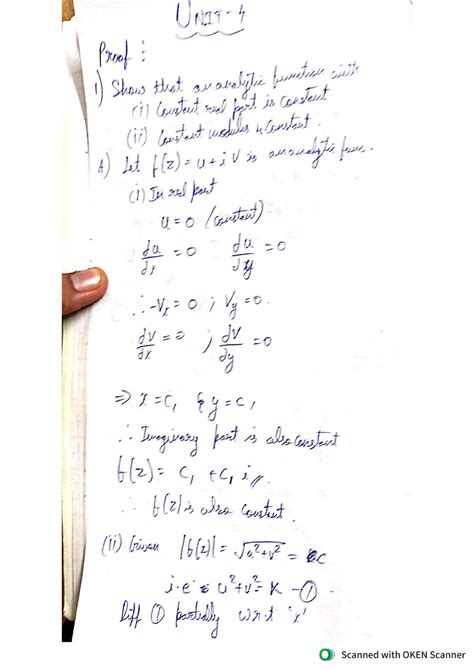 UNIT-4
Proof :
1) Show that an analytic function with
(i) Constant real part is constant
(ii) Constant modulus is Constant.
A) Let f(z) = u + i V is an analytic func.
(i) In real part
u = 0 (constant)
du/dx = 0 du/dy = 0
∴ -Vx = 0 ; Vy = 0
dV/dx = 0 ; dV/dy = 0
⇒ x = c, & y = c,
∴ Imaginary part is also constant
f(z) = C, + C, i,,
∴ f(z) is also constant.
(ii) Given |f(z)| = √u²+v² = C
i.e u²+v² = K - ①
Diff ① partially w.r.t 'x'
Scanned with OKEN Scanner